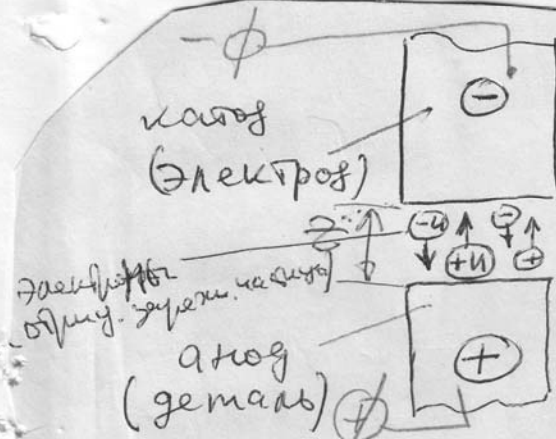 −
катод
(электрод)
−
Z
−и − 
+и +
электроны
(отриц. заряж. частица)
анод
(деталь)
+
+